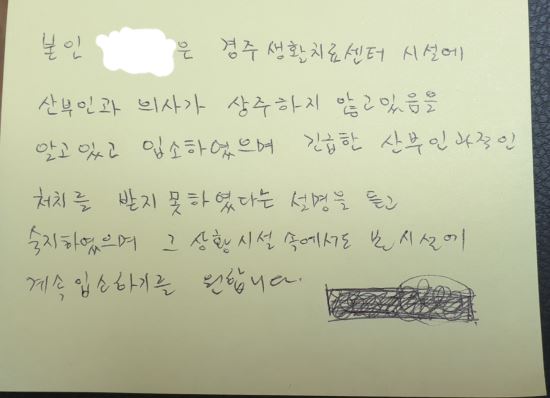 본인 은 경주생활치료센터 시설에
산부인과 의사가 상주하지 않고있음을
알고있고 입소하였으며 긴급한 산부인과적인
처치를 받지못하였다는 설명을 듣고
숙지하였으며 그 상황시설 속에서도 본시설에
계속입소하기를 원합니다.